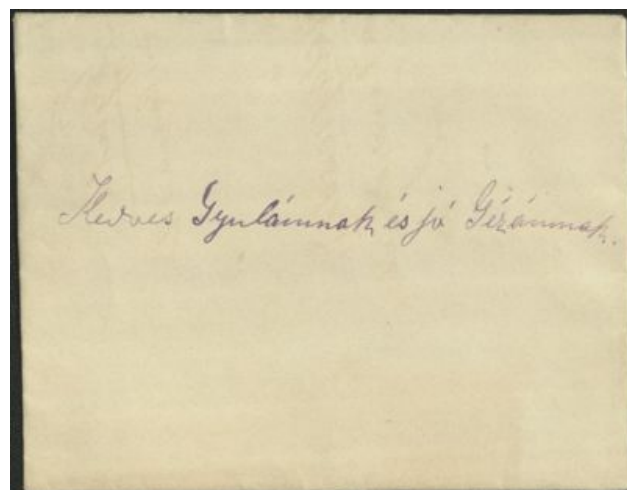 Kedves Gyulámnak, és jó Gézámnak.